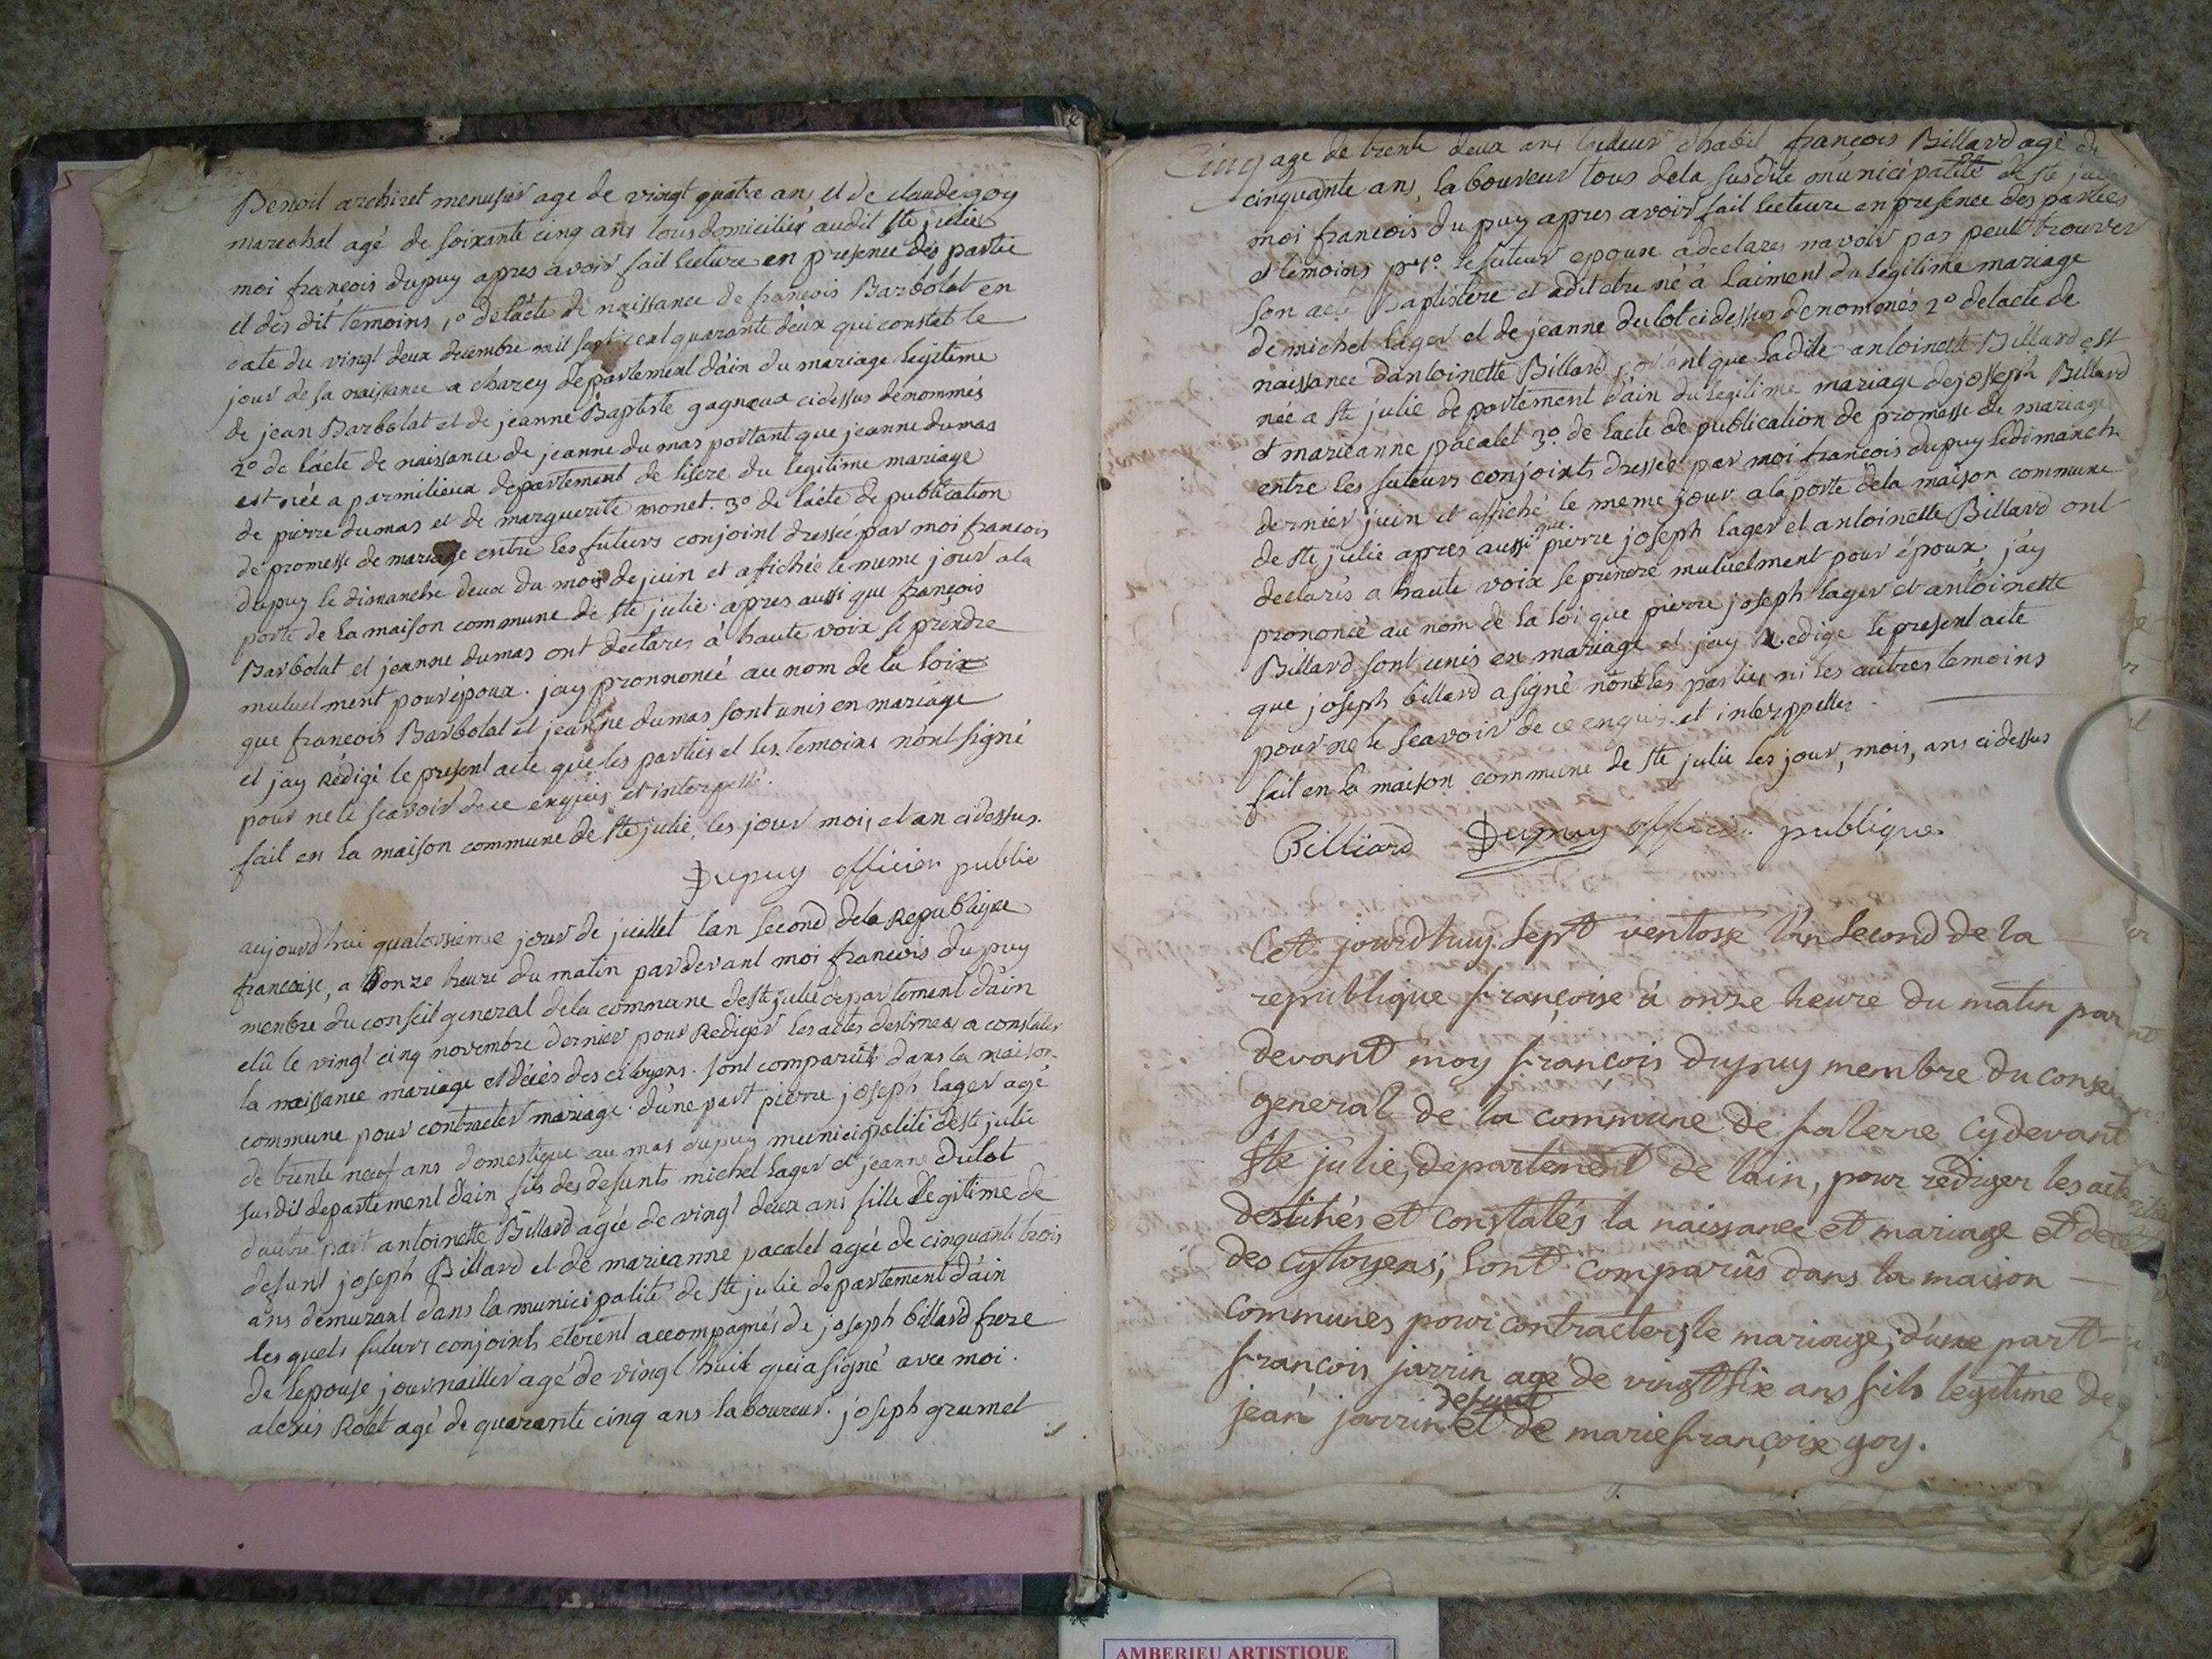 Benoit archiret menusier age de vingt quatre ans et de claude goy
marechal agé de soixante cinq ans tous domiciliés audit ste julie
moi francois dupuy apres avoir fait lecture en presence des partie
et des dit temoins 1º de lácte de naissance de francois Barbolat en
date du vingt deux decembre mil sept cent quarante deux qui constat le
jour de sa naissance a charey departement dain du mariage legitime
de jean Barbolat et de jeanne Baptiste gagneux cidessus denommés
2º de lácte de naissance de jeanne dumas portant que jeanne dumas
est née a parmilieux departement de lisere du legitime mariage
de pierre dumas et de marguerite monet. 3º de lácte de publication
de promesse de mariage entre les futurs conjoint dressée par moi francois
dupuy le dimanche deux du mois de juin et afichée le meme jour a la
porte de la maison commune de ste julie. apres aussi que françois
Barbolat et jeanne dumas ont declares à haute voix se prendre
mutuelment pour époux. jay pronnoncé au nom de la loix
que francois Barbolat et jeanne dumas sont unis en mariage
et jay rédigé le present acte que les parties et les temoins nont signé
pour ne le scavoir de ce enquis et interpellé.
fait en la maison commune de ste julie, les jour mois et an cidessus.
Dupuy officier public
aujourdhui quatorsieme jour de juillet lan second dela Republique
francaise, a onze heure du matin pardevant moi francois dupuy
menbre du conseil general dela commune de ste julie departement dain
elû le vingt cinq novembre dernier pour Rediger les actes destinés a constater
la naissance mariage et décés des citoyens. sont comparût dans la maison
commune pour contracter mariage. dúne part pierre joseph lager agé
de trente neuf ans domestique au mas dupuy municipalité de ste julie
susdit departement dain fils des defunts michel lager et jeanne dulot
dautre part antoinette Billard agée de vingt deux ans fille legitime de
defunt joseph Billard et de marieanne pacalet agée de cinquante trois
ans demurant dans la municipalité de ste julie departement dáin
les quels futurs conjoints eterent accompagnés de joseph billard frere
de lepouse journailler agé de vingt huit qui a signé avec moi.
alexis Rolet agé de quarante cinq ans laboureur. joseph grumet
Cinq age de trente deux ans tailleur dhabit françois Billard agé de
cinquante ans, laboureur tous dela susdite municipalité de ste
moi francois dupuy apres avoir fait lecteure en presence des parties
et temoins 1º. le futur epoux a declares navoir pas peut trouver
son acte Baptistere et adit etre né á Laiment du legitime mariage
de michel lager et de jeanne dulot cidessus denommés 2º delacte de
naissance dantoinette Billard portant que ladite antoinette Billard est
née a ste julie departement dáin du legitime mariage dejosseph Billard
et marieanne pacalet 3º. de lacte de publication de promesse de mariage
entre les futeurs conjoints dressée par moi francois dupuy ledimanche
dernier juin et affiché le meme jour a la porte dela maison commune
de ste julie apres aussi que pierre joseph lager et antoinette Billard ont
declarés a haute voix se prendre mutuelment pour époux jáy
prononcé au nom de la loi que pierre joseph lager et antoinette
Billard sont unis en mariage et jay Redige le present acte
que joseph billard a signé non les parties ni les autres temoins
pour ne le scavoir de ce enquis et interppelles.
fait en la maison commune de ste julie les jour, mois, ans cidessus
Billiard Dupuy officier publique.
Cet jourdhuy sept ventose lán second de la
republique françoise à onze heure du matin par
devant moy françois dupuy membre du conseil
general de la commune de falerne cydevant
ste julie, departement de lain, pour rediger les acte
destinés et constatés la naissance et mariage et
des cytoyens; sont comparûs dans la maison
communes pour contracter le mariage, dúne part
francois jarrin agé de vingt six ans fils legitime de
defunt
jeán jarrin et de marie françoise goy.
AMBERIEU ARTISTIQUE